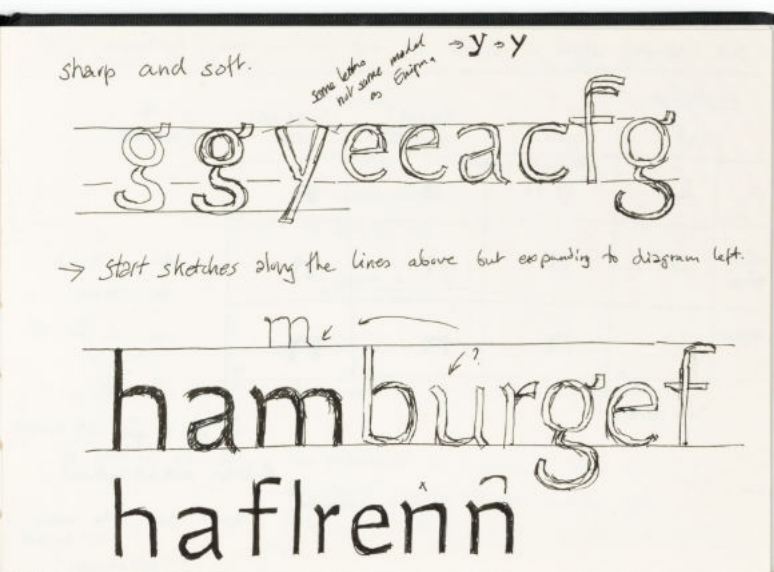 sharp and soft.
some letters
not same model
as Enigma
→ y → y
g g y e e a c f g
→ start sketches along the lines above but expanding to diagram left.
m
?
hamburgef
haflrenn